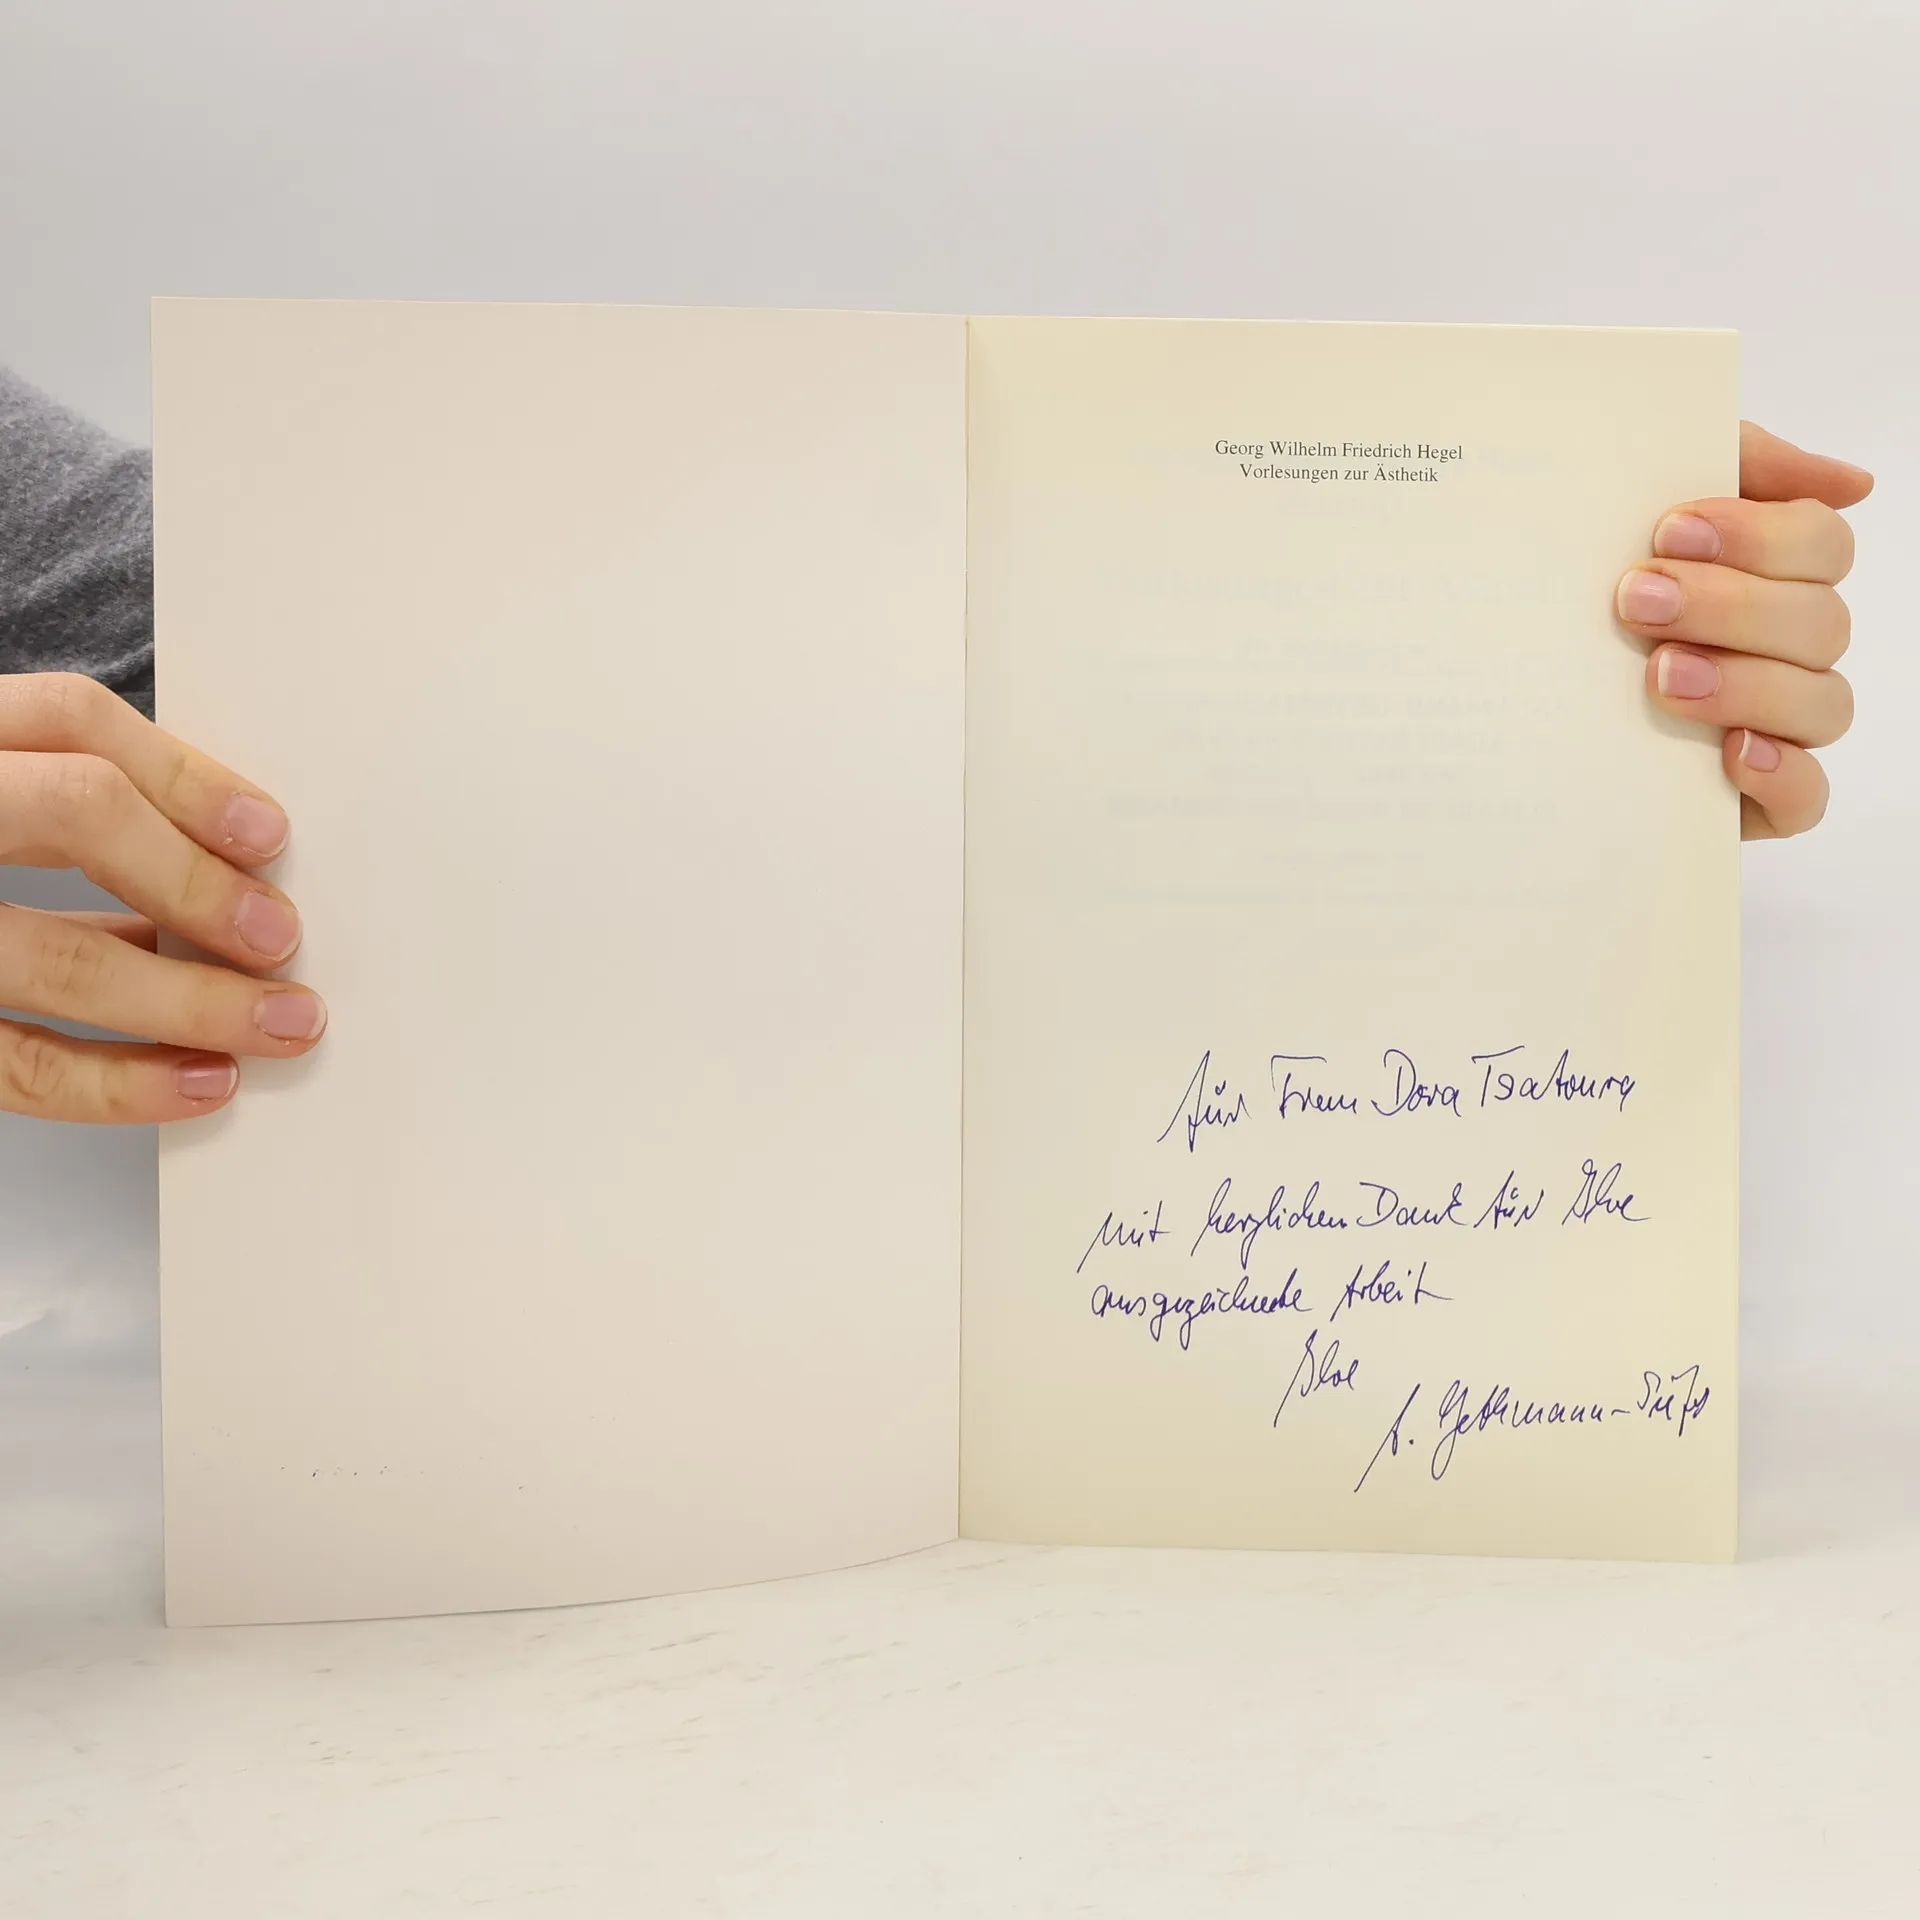 Georg Wilhelm Friedrich Hegel
Vorlesungen zur Ästhetik
für Frau Dora Tsatoura
mit herzlichem Dank für Ihre
ausgezeichnete Arbeit
Ihre
A. Gethmann-Siefert